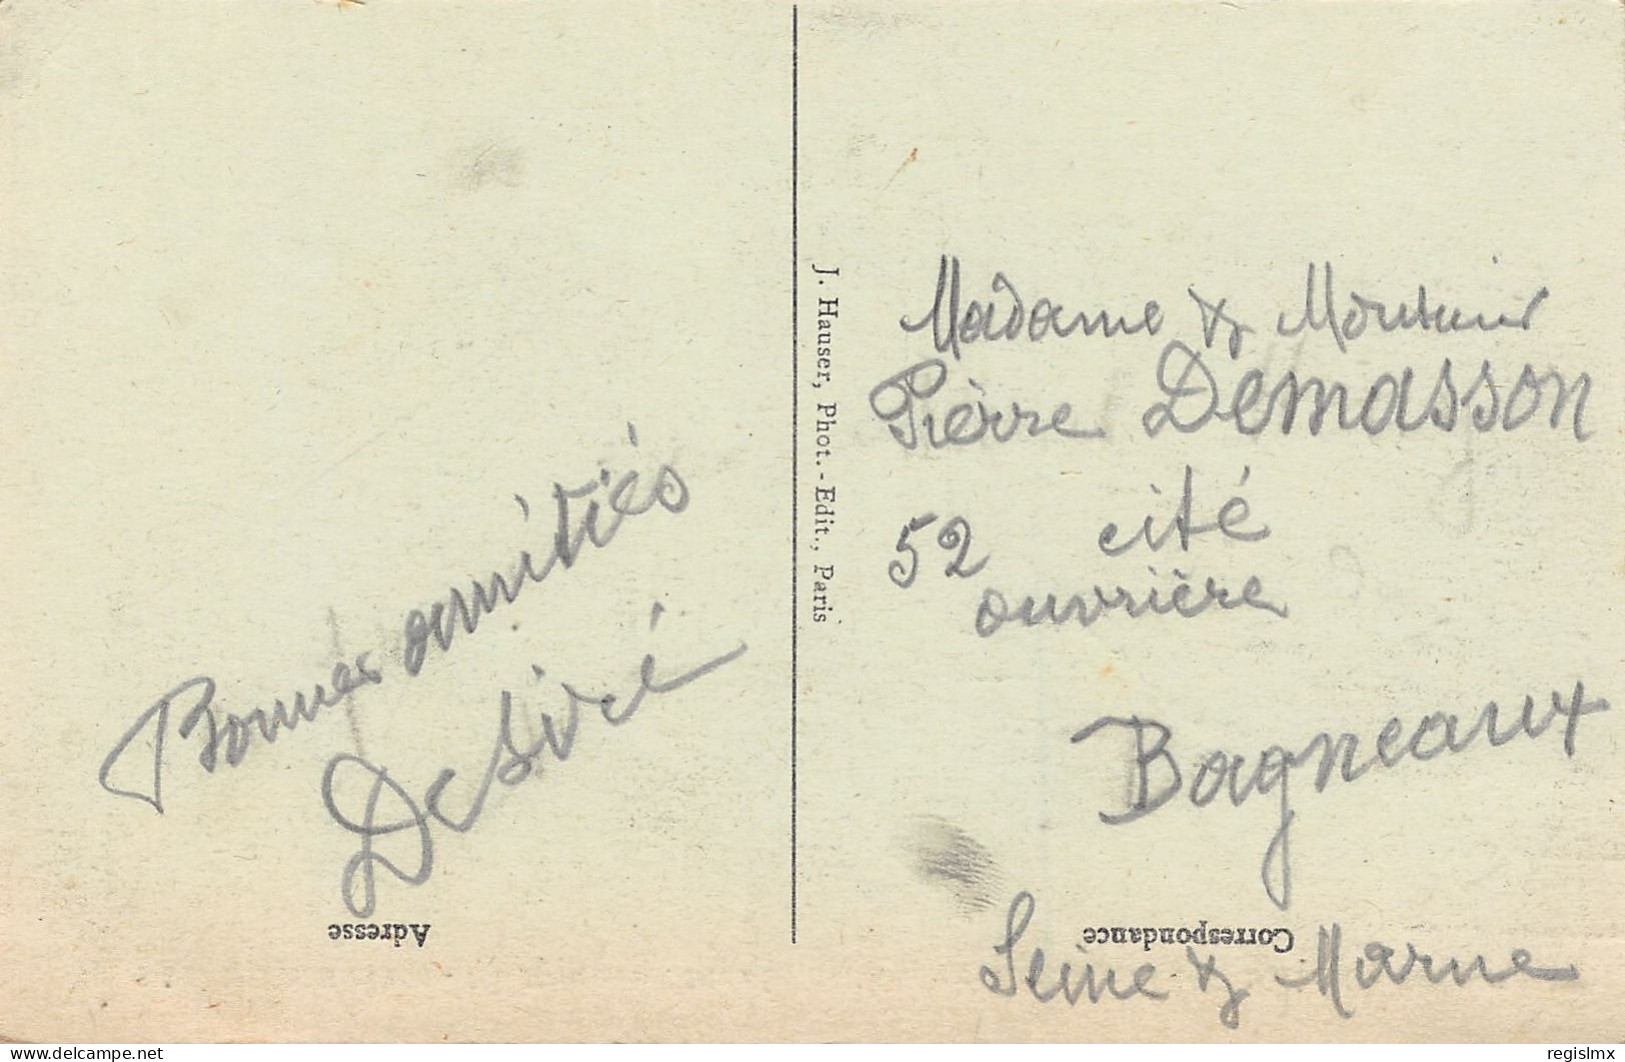 Bonnes amitiés
Desiré
Adresse
J. Hauser, Phot.-Edit., Paris
Madame & Monsieur
Pièrre Demasson
52 cité
ouvrière
Bagneaux
Correspondance
Seine & Marne
delcampe.net
regislmx